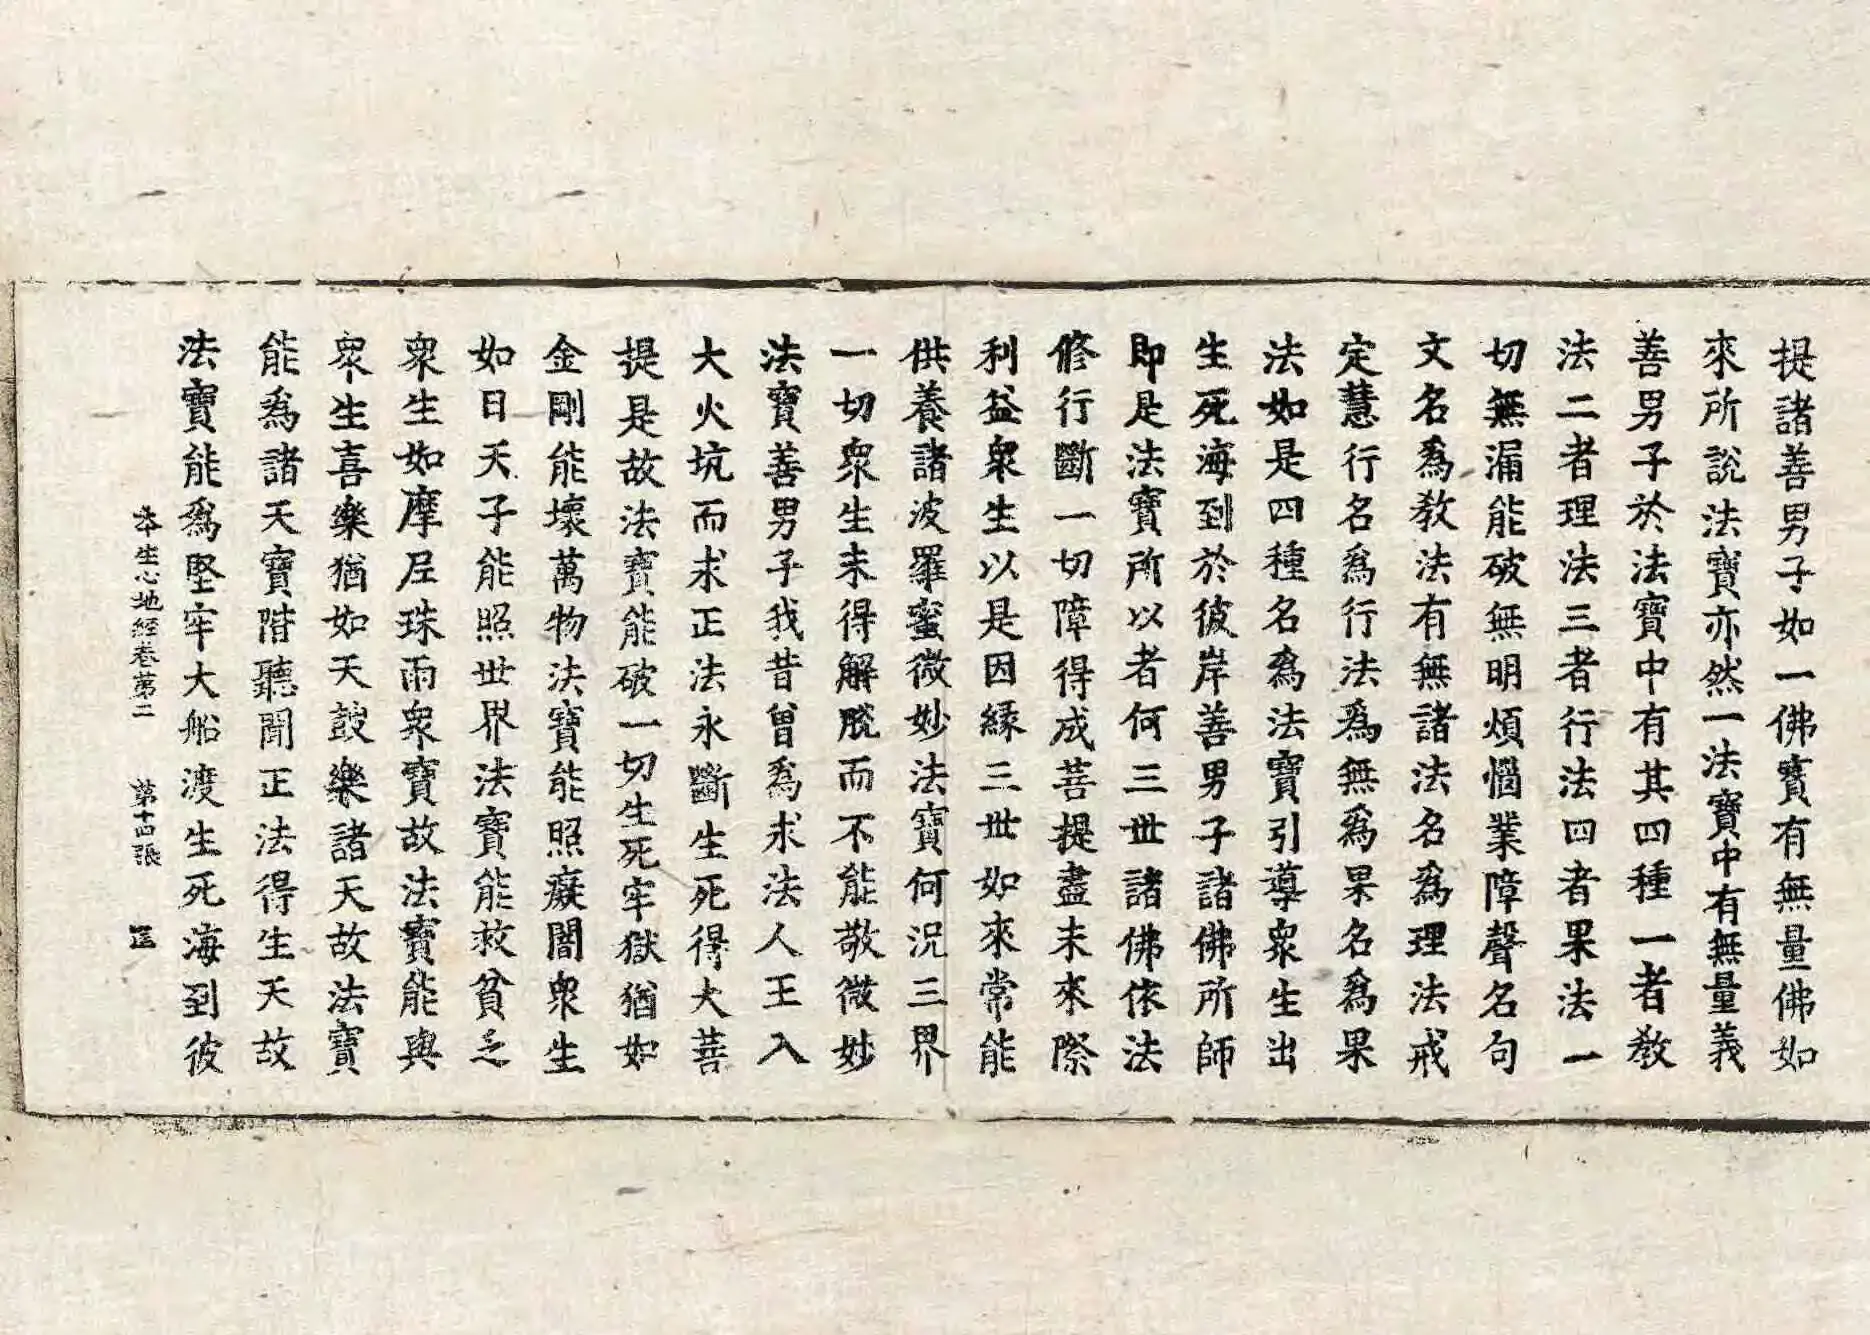 提諸善男子如一佛寳有無量佛如
來所說法寶亦然一法寶中有無量義
善男子於法寶中有其四種一者教
法二者理法三者行法四者果法一
切無漏能破無明煩惱業障聲名句
文名爲教法有無諸法名爲理法戒
定慧行名爲行法爲無爲果名爲果
法如是四種名爲法寶引導衆生出
生死海到於彼岸善男子諸佛所師
即是法寶所以者何三世諸佛依法
修行斷一切障得成菩提盡未來際
利益衆生以是因緣三世如來常能
供養諸波羅蜜微妙法寶何況三界
一切衆生未得解脫而不能敬微妙
法寶善男子我昔曾爲求法人王入
大火坑而求正法永斷生死得大菩
提是故法寶能破一切生死牢獄猶如
金剛能壞萬物法寶能照癡闇衆生
如日天子能照世界法寶能救貧乏
衆生如摩尼珠雨衆寶故法寶能與
衆生喜樂猶如天鼓樂諸天故法寶
能爲諸天寶階聽聞正法得生天故
法寶能爲堅牢大船渡生死海到彼
本生心地經卷第二 第十四張